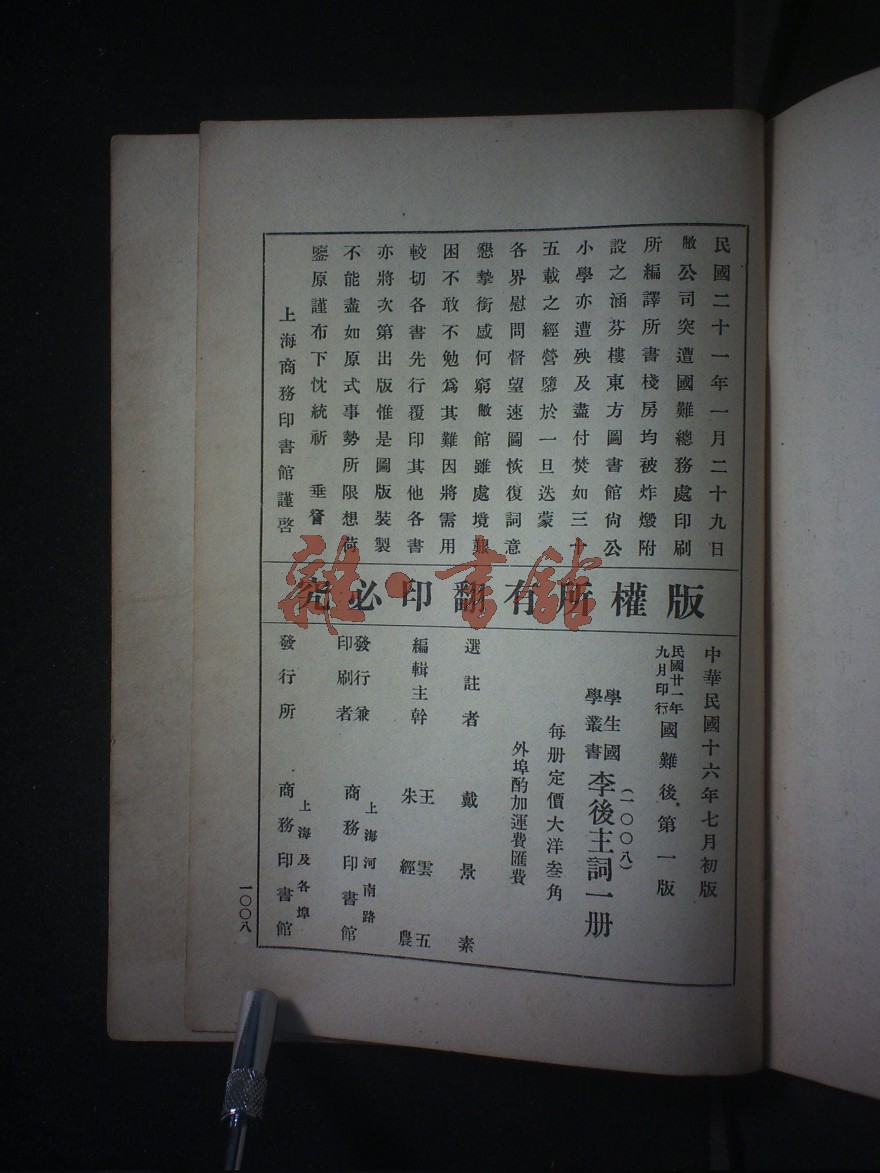 民國二十一年一月二十九日
敝公司突遭國難總務處印刷
所編譯所書棧房均被炸燬附
設之涵芬樓東方圖書館尙公
小學亦遭殃及盡付焚如三十
五載之經營隳於一旦迭蒙
各界慰問督望速圖恢復詞意
懇摯銜感何窮敝館雖處境艱
困不敢不勉爲其難因將需用
較切各書先行覆印其他各書
亦將次第出版惟是圖版裝製
不能盡如原式事勢所限想荷
鑒原謹布下忱統祈 垂詧
上海商務印書館謹啓
版權所有翻印必究
中華民國十六年七月初版
民國廿一年九月印行國難後第一版
(一〇〇八)
學生國學叢書 李後主詞一册
每册定價大洋叁角
外埠酌加運費匯費
選註者 戴景素
編輯主幹 王雲五 朱經農
發行兼印刷者 上海河南路 商務印書館
發行所 上海及各埠 商務印書館
一〇〇八
雜·書館